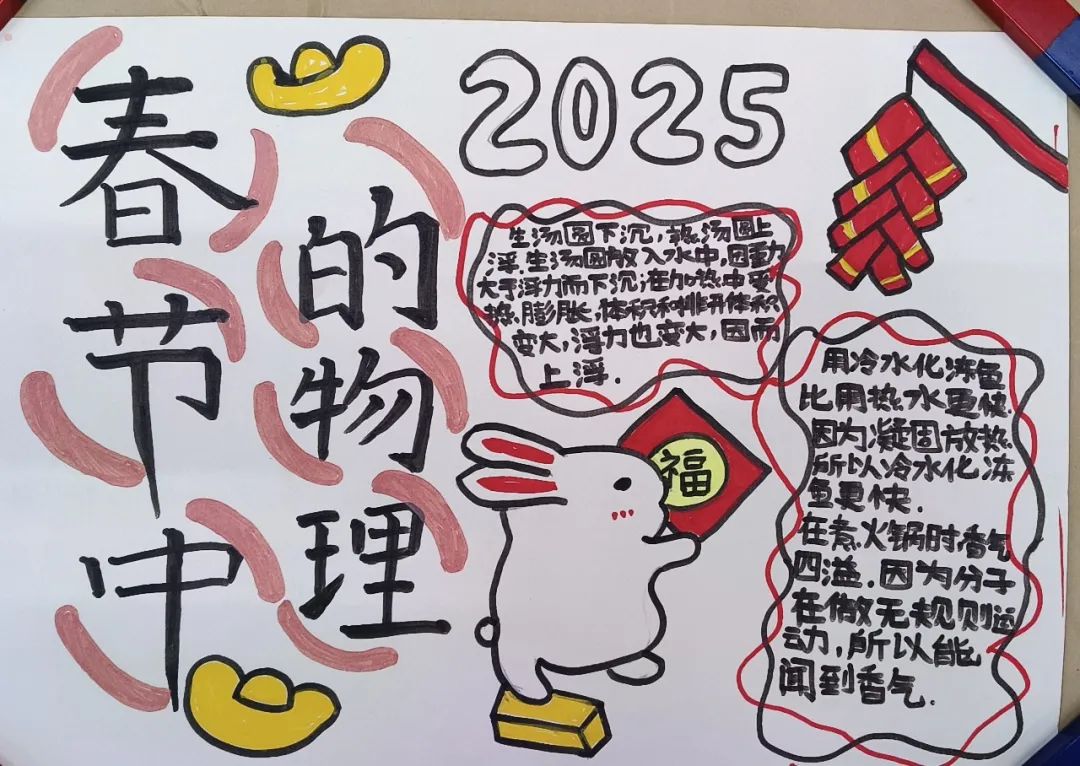 春节中
的物理
2025
生汤圆下沉，熟汤圆上
浮.生汤圆放入水中，因重力
大于浮力而下沉;在加热中受
热、膨胀，体积和排开体积
变大，浮力也变大，因而
上浮.
福
用冷水化冻鱼
比用热水更快.
因为凝固放热
所以冷水化冻
鱼更快.
在煮火锅时香气
四溢.因为分子
在做无规则运
动,所以能
闻到香气.